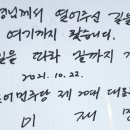 께서 열어주신 길을
여기까지 왔습니다.
을 따라 끝까지
2021. 10. 22.
어민주당 제20대 대
이 재